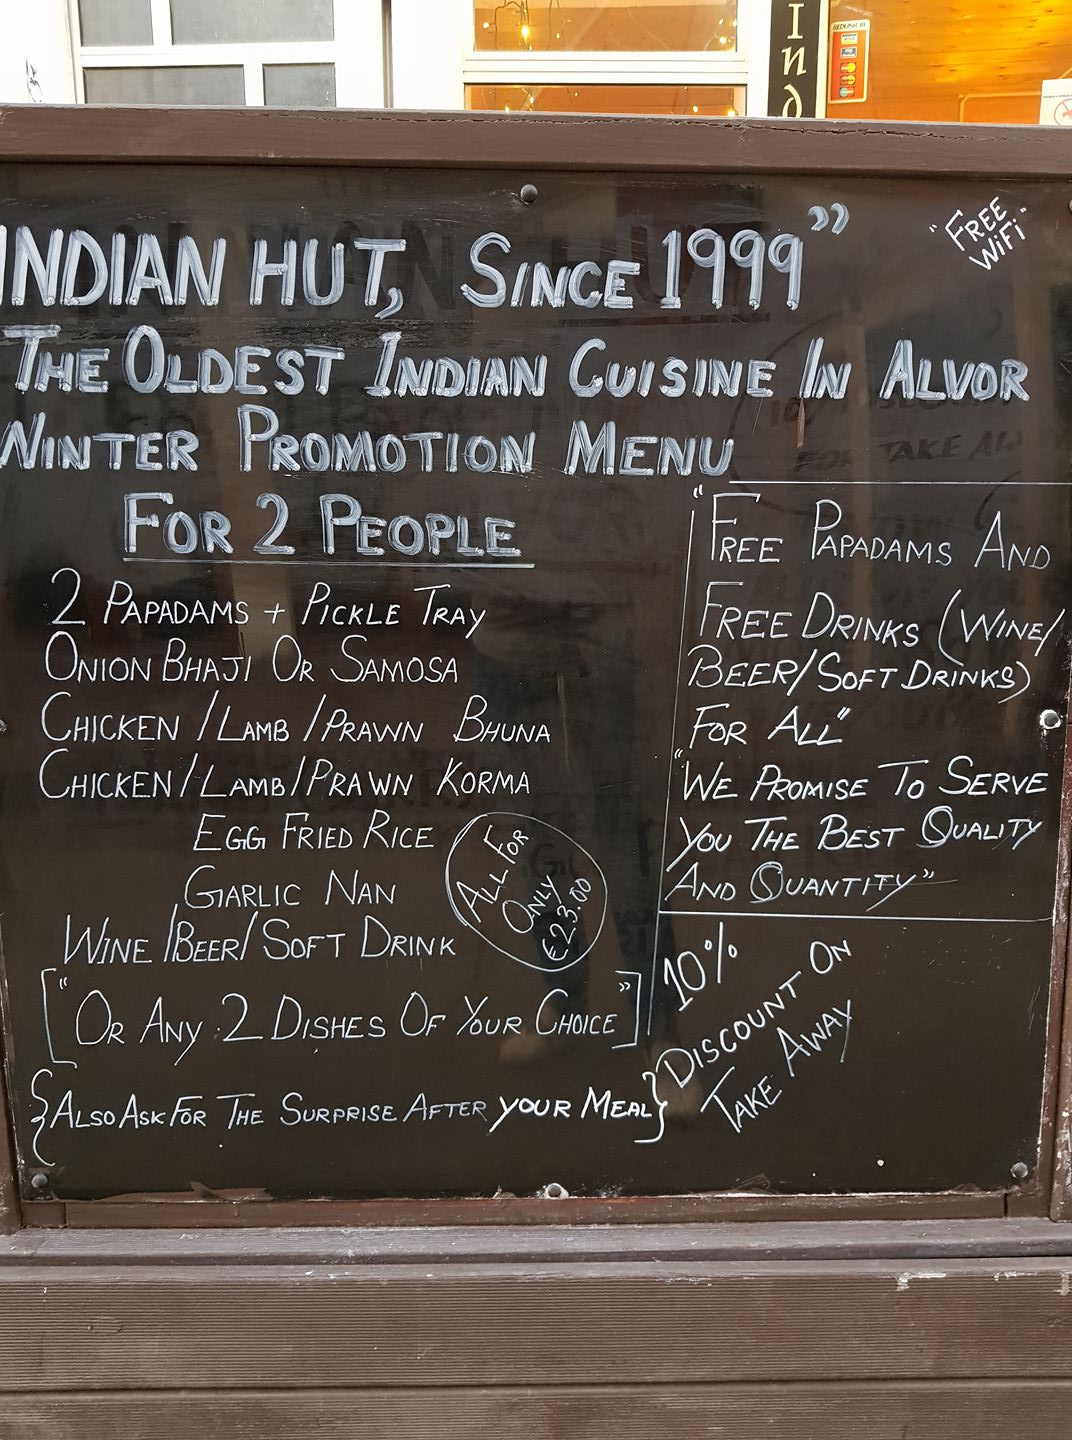 Ind
REDUNICRE
INDIAN HUT, SINCE 1999"
"FREE
WiFi"
THE OLDEST INDIAN CUISINE IN ALVOR
WINTER PROMOTION MENU
FOR 2 PEOPLE
2 PAPADAMS + PICKLE TRAY
ONION BHAJI OR SAMOSA
CHICKEN / LAMB / PRAWN BHUNA
CHICKEN / LAMB / PRAWN KORMA
EGG FRIED RICE
GARLIC NAN
WINE / BEER / SOFT DRINK
ALL FOR
ONLY
€23.00
["OR ANY 2 DISHES OF YOUR CHOICE"]
{ALSO ASK FOR THE SURPRISE AFTER YOUR MEAL}
"FREE PAPADAMS AND
FREE DRINKS (WINE/
BEER/SOFT DRINKS)
FOR ALL"
"WE PROMISE TO SERVE
YOU THE BEST QUALITY
AND QUANTITY"
10%
DISCOUNT ON
TAKE AWAY